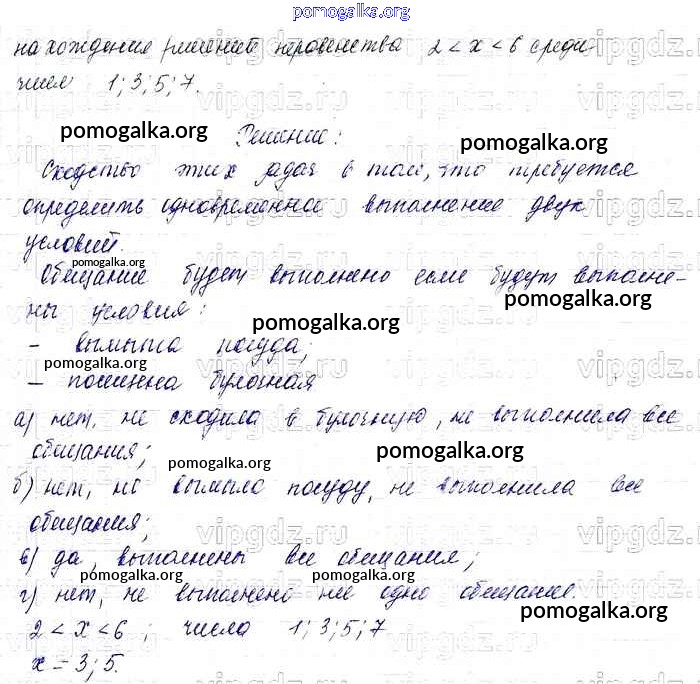 pomogalka.org
нахождения решений неравенства 2 < x < 6 среди
чисел 1; 3; 5; 7.
pomogalka.org
Решение: pomogalka.org
Сходство этих задач в том, что требуется
определить одновременное выполнение двух
условий.
pomogalka.org
Обещание будет выполнено если будут выполне-
ны условия: pomogalka.org
pomogalka.org
- вымыта посуда;
pomogalka.org
- посещена булочная
а) нет, не сходила в булочную, не выполнила все
обещания; pomogalka.org pomogalka.org
б) нет, не вымыла посуду, не выполнила все
обещания;
в) да, выполнены все обещания;
pomogalka.org pomogalka.org
г) нет, не выполнено ни одно обещание.
pomogalka.org
2 < x < 6 ; числа 1; 3; 5; 7
x = 3; 5.
vipgdz.ru